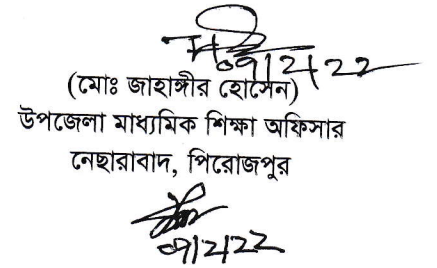 ০৭/২/২২
(মোঃ জাহাঙ্গীর হোসেন)
উপজেলা মাধ্যমিক শিক্ষা অফিসার
নেছারাবাদ, পিরোজপুর